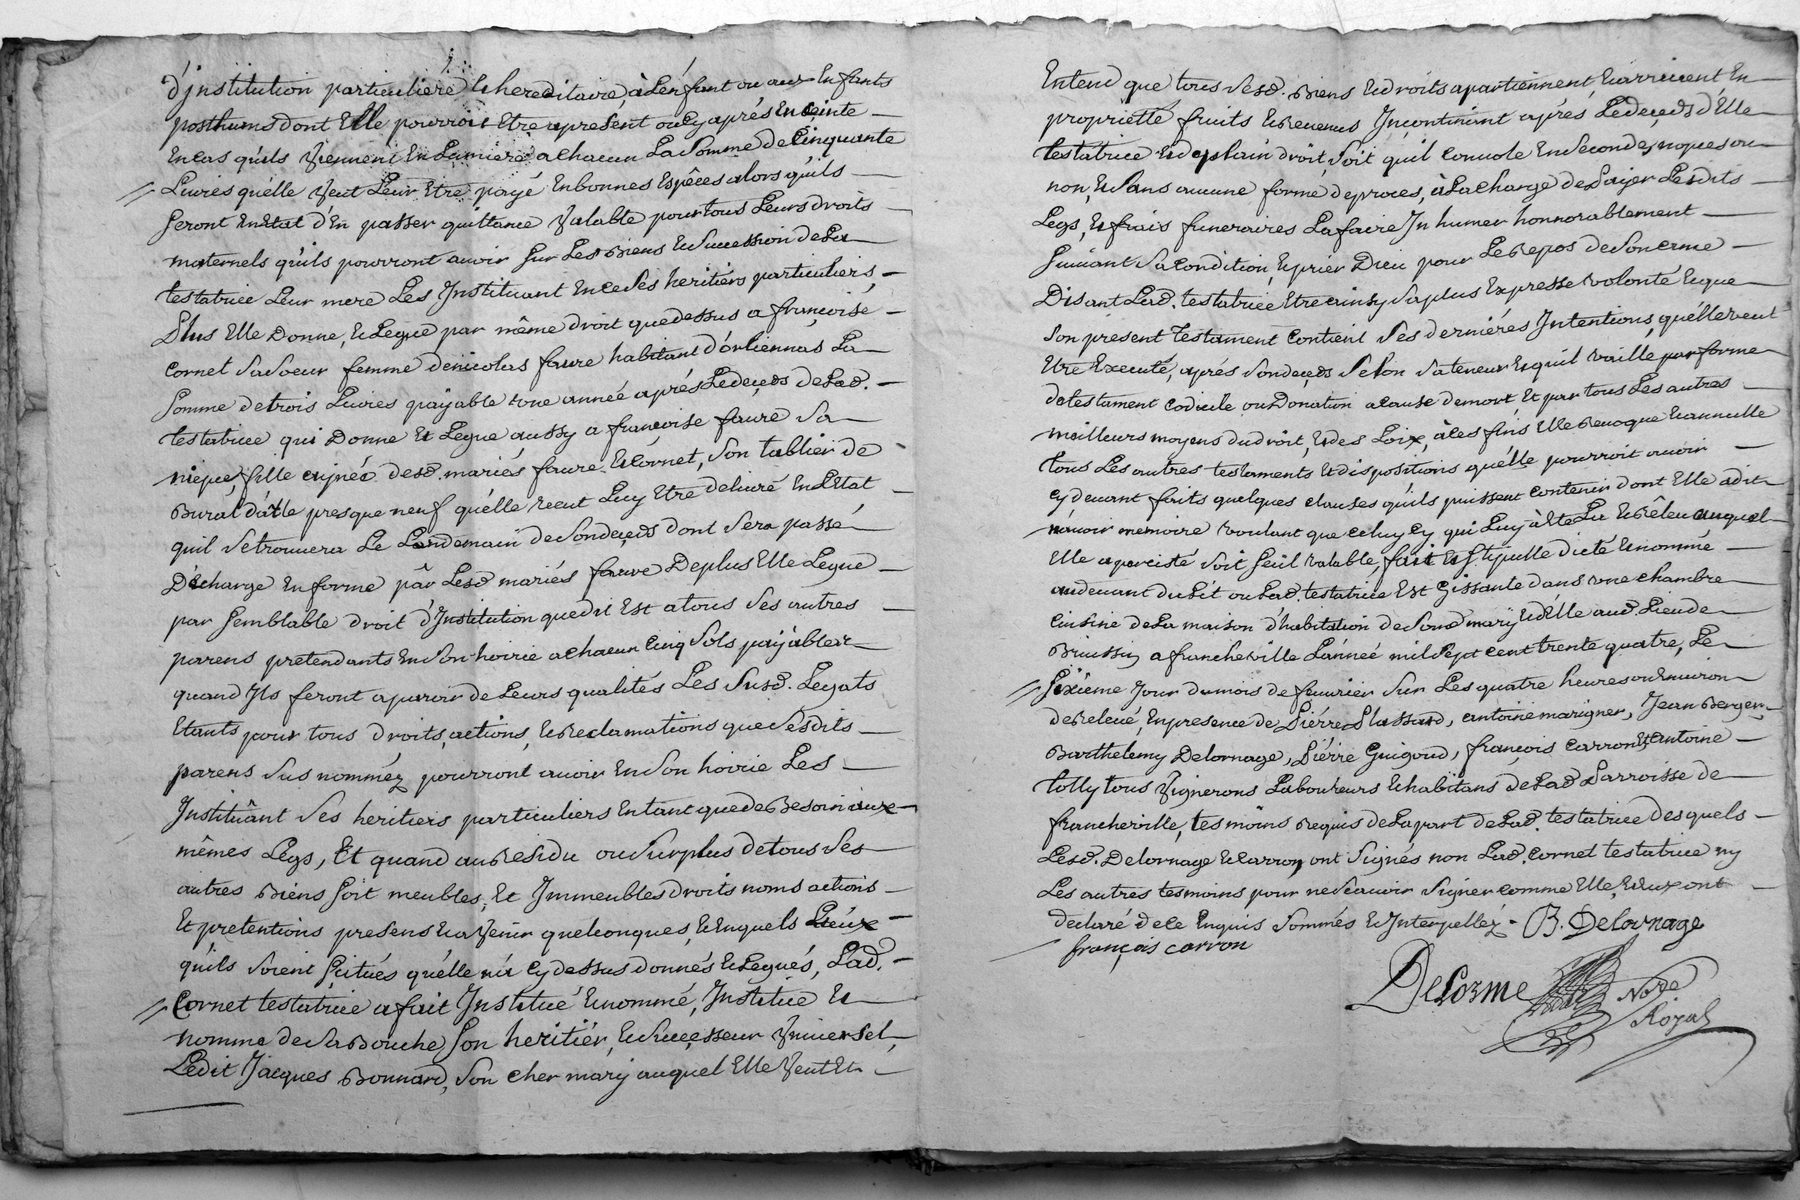 d'jnstitution particuliere & hereditaire, à Lénfant ou aux Enfants
posthums dont Elle pourroit Etre apresent ou cy aprés Enceinte
En cas qu'ils Viennent En Lumiere a chacun La Somme de Cinquante
Livres qu'elle Veut Leur Etre payé En bonnes Espêces alors qu'ils
Seront En Etat d'En passer quittance Valable pour tous Leurs droits
maternels qu'ils pourront avoir Sur Les Biens & Succession de La
testatrice Leur mere Les Jnstituant En ce Ses heritiers particuliers,
Plus Elle Donne, & Legue par même droit que dessus a françoise
Cornet Sa Soeur femme de nicolas faure habitant d'orliennas La
Somme de trois Livres payable une année aprés Le deçeds de Lad.
testatrice qui Donne Et Legue aussy a françoise faure Sa
niepce, fille ainée desd. mariés faure & Cornet, Son tablier de
Burat d'atle presque neuf qu'elle veut Luy Etre delivré En L'Etat
quil Se trouvera Le Landemain de Son deçeds dont Sera passé
Décharge En forme pâr Lesd mariés faure De plus Elle Legue
par Semblable droit d'Jnstitution que dit Est a tous Ses autres
parens pretendants En Son hoirie a chacun Cinq Sols payables
quand Jls feront aparoir de Leurs qualités Les Susd. Legats
Etants pour tous droits, actions, & Reclamations que Sesdits
parens Sus nommez pourront avoir En Son hoirie Les
Jnstituânt Ses heritiers particuliers En tant que de Besoin aux
mêmes Legs, Et quand au Residu ou Surplus de tous Ses
autres Biens Soit meubles, Et Jmmeubles Droits noms actions
Et pretentions presens & a Venir quelconques, & En quels Lieux
qu'ils Soient Scitués qu'elle n'a Cy dessus donnés & Legués, Lad.
Cornet testatrice a fait Jnstitué & nommé, Jnstitue &
nomme de Sa Bouche Son heritiér, & Sucçesseur Vniversel,
Ledit Jacques Bonnard, Son cher mary auquel Elle Veut &
Entend que tous Sesd. Biens & droits apartiennent, & arrivent En
propriétté fruits & Revenus Jncontinent aprés Le deçeds d'Elle
testatrice & de plain droit, Soit quil convole En Secondes nopces ou
non, & Sans aucune forme de proces, à La charge de Païer Lesdits
Legs, & frais funeraires La faire Jnhumer honnorablement
Suivant Sa Condition, & prier Dieu pour Le Repos de Son ame
Disant Lad. testatrice Etre ainsy Sa plus Expresse volonté & que
Son present testament Contient Ses derniéres Jntentions, qu'elle veut
Etre Executé, aprés Son deçeds Selon Sa teneur & quil vaille par forme
de testament Codicile ou Donation a cause de mort, Et par tous Les autres
meilleurs moyens du droit, & des Loix, à Ces fins Elle Revoque & annulle
tous Les autres testaments Et dispositions qu'elle pourroit avoir
Cy devant faits quelques clauses qu'ils puissent Contenir dont Elle a dit
n'avoir memoire voulant que celuy Cy qui Luy à Eté Lu & Rêlu auquel
Elle a persisté Soit Seul valable, fait & Stipullé dicté & nommé
au devant du Lit ou Lad. testatrice Est Gissante dans une chambre
cuisine de La maison d'habitation de Sond mary & d'Elle aud. Lieu de
Bruissin a francheville L'anneé mil Sept cent trente quatre, Le
Sixieme Jour du mois de fevrier Sur Les quatre heures ou Environ
de Relevé, En presence de Piérre Plassard, antoine marigner, Jean Berger,
Barthelemy Delornage, Piérre Guigoud, françois Carron & Antoine
tolly tous Vignerons Laboureurs & habitans de Lad Parroisse de
francheville, tesmoins Requis de La part de Lad. testatrice desquels
Lesd. Delornage & Carron ont Signés non Lad. Cornet testatrice ny
Les autres tesmoins pour ne Scavoir Signer comme Elle, & Eux ont
declaré de ce Enquis Sommés & Jnterpellez. B. Delornage
françois carron
Delorme Nore
Royal